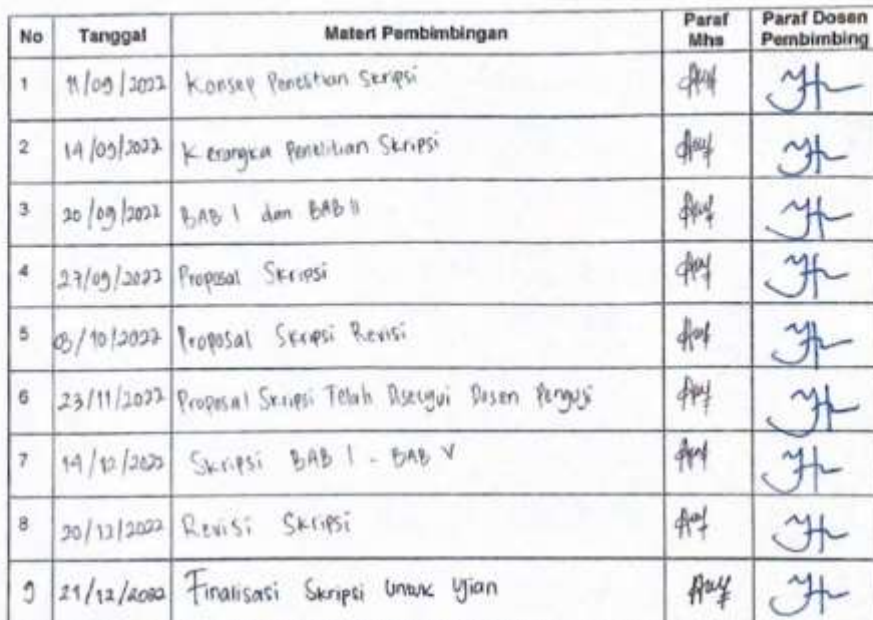 No Tanggal Materi Pembimbingan Paraf Mhs Paraf Dosen Pembimbing
1 11/09/2022 Konsep Penelitian Skripsi
2 14/09/2022 Kerangka Penelitian Skripsi
3 20/09/2022 BAB I dan BAB II
4 27/09/2022 Proposal Skripsi
5 03/10/2022 Proposal Skripsi Revisi
6 23/11/2022 Proposal Skripsi Telah Disetujui Dosen Penguji
7 14/12/2022 Skripsi BAB I - BAB V
8 20/12/2022 Revisi Skripsi
9 21/12/2022 Finalisasi Skripsi Untuk Ujian